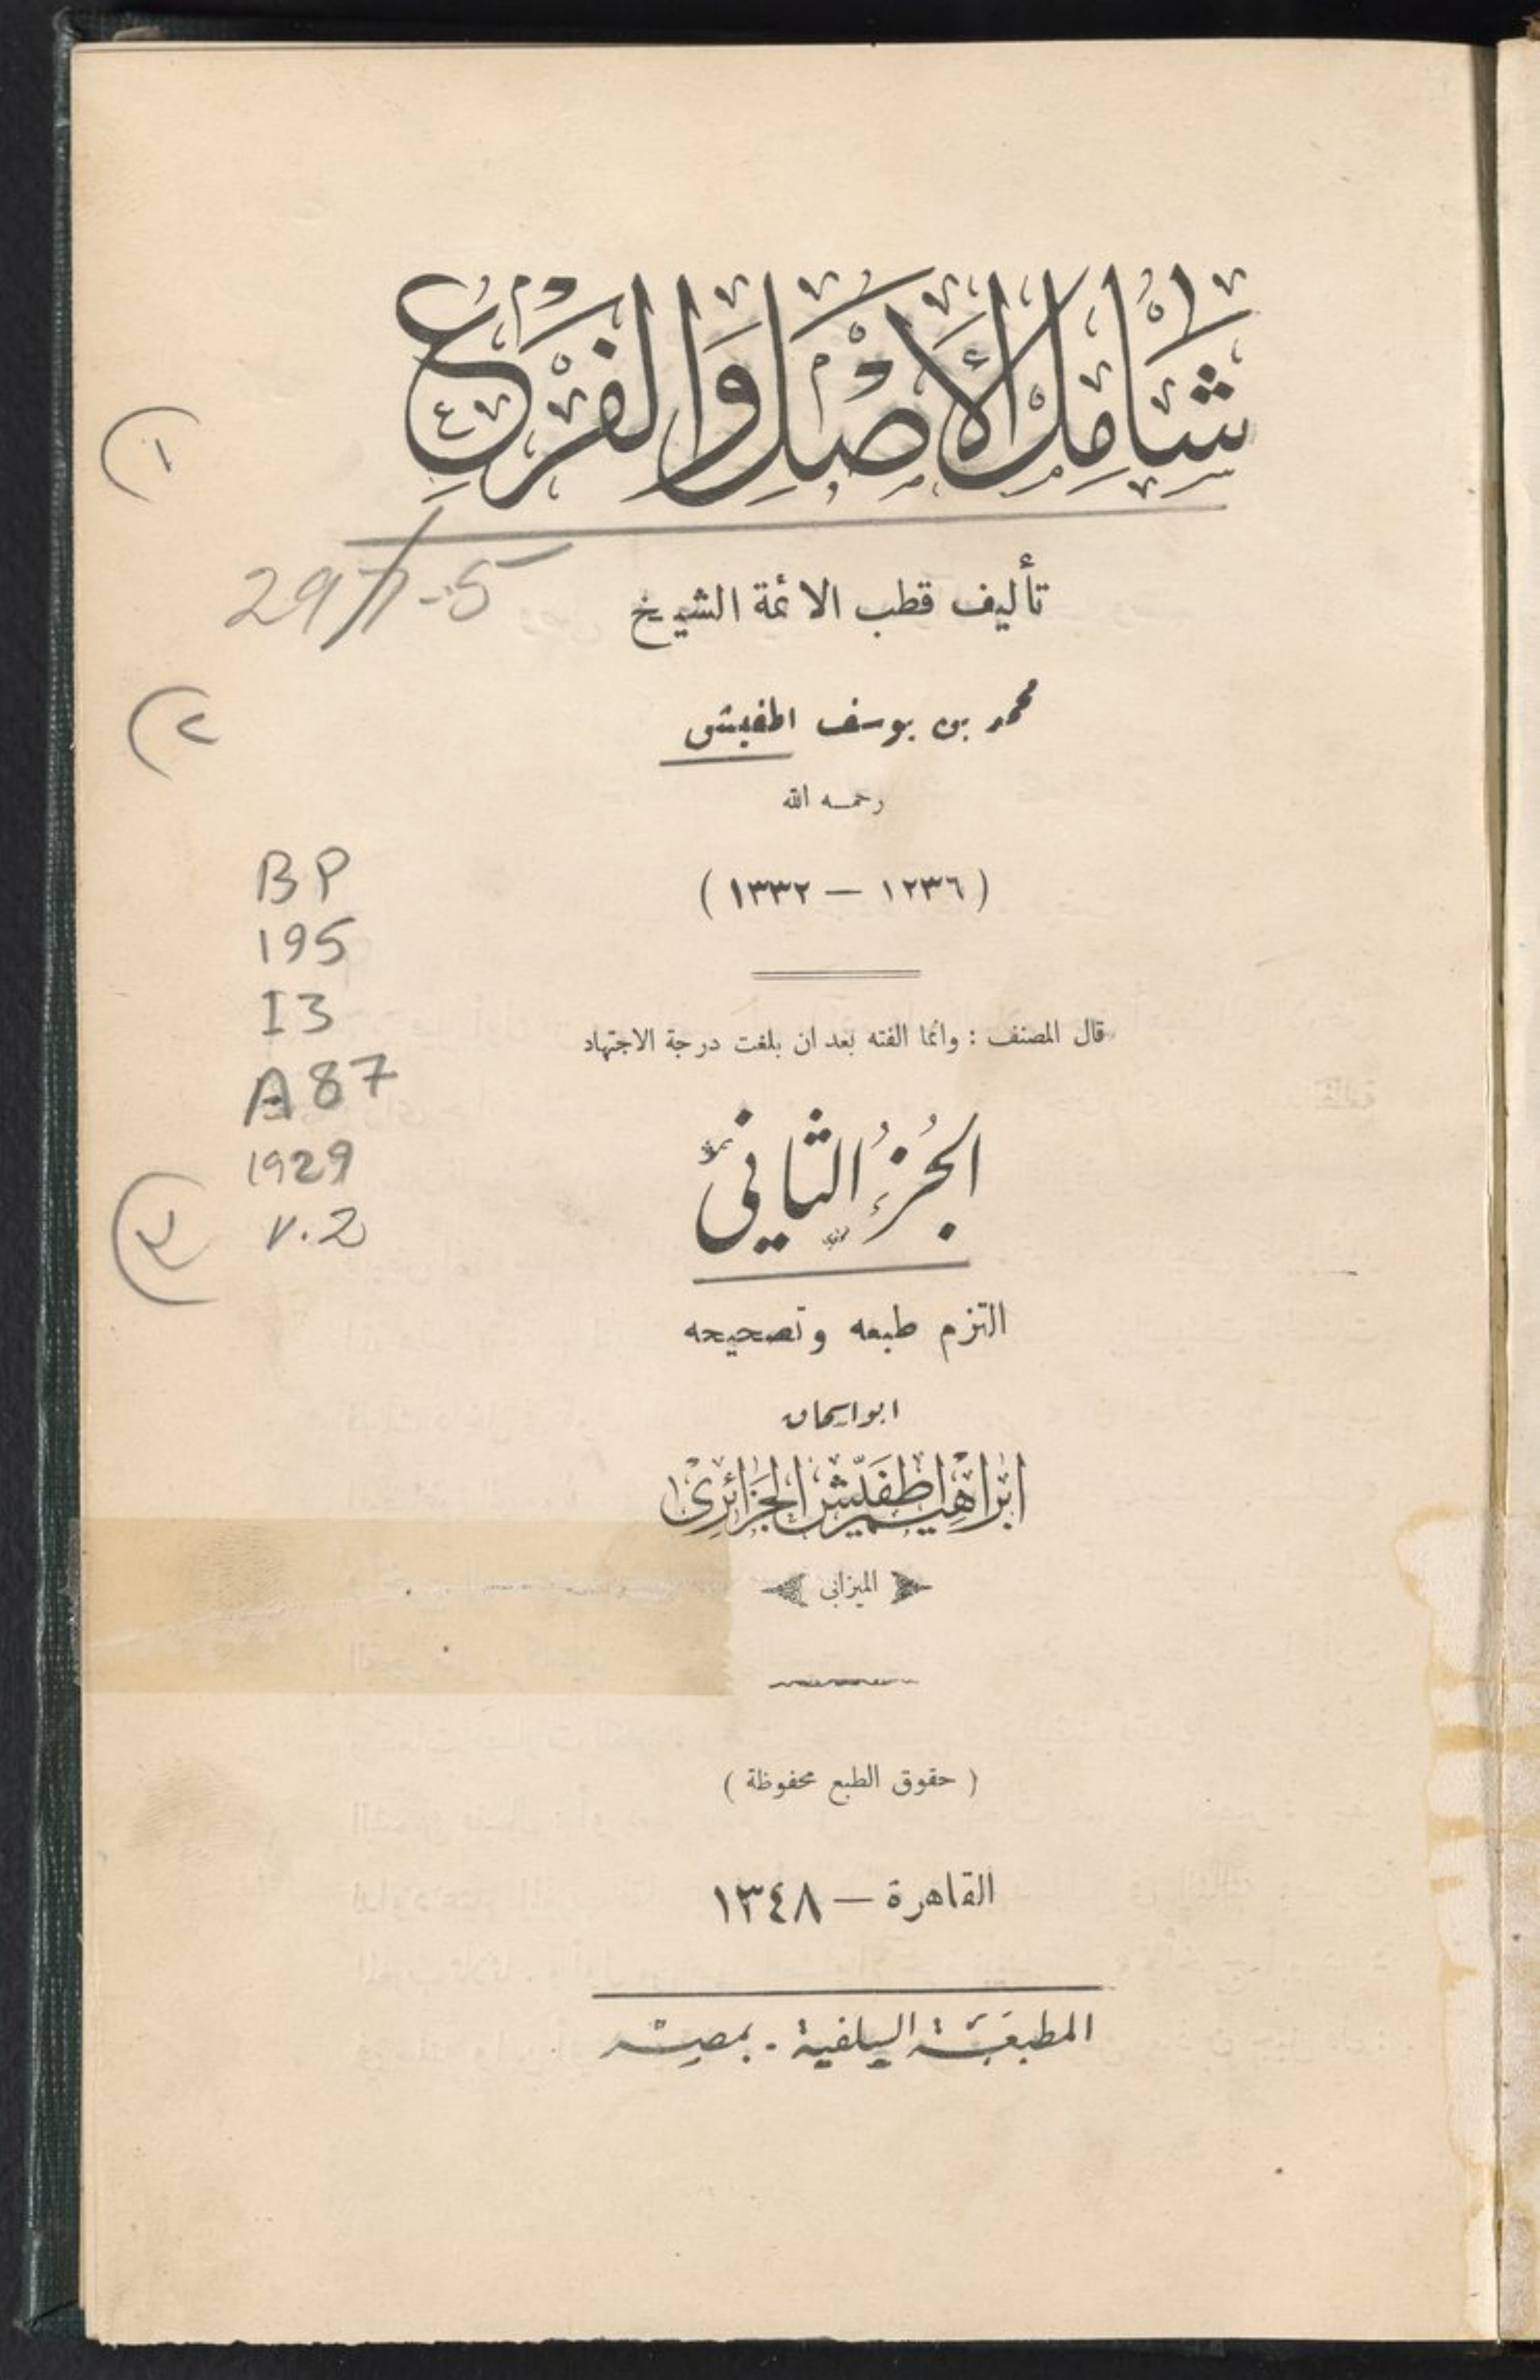 شَامِلُ الأَصْلِ وَالفَرْعِ
تأليف قطب الائمة الشيخ
محمد بن يوسف اطفيش
رحمه الله
( ١٢٣٦ — ١٣٣٢ )
قال المصنف : وانما الفته بعد ان بلغت درجة الاجتهاد
الجُزءُ الثاني
التزم طبعه وتصحيحه
ابو اسحاق
ابراهيم اطفيّش الجزائري
الميزابى
( حقوق الطبع محفوظة )
القاهرة — ١٣٤٨
المطبعة السلفية - بمصر
(١
297.5
(٢
BP
195
I3
A87
1929
v.2
(٣